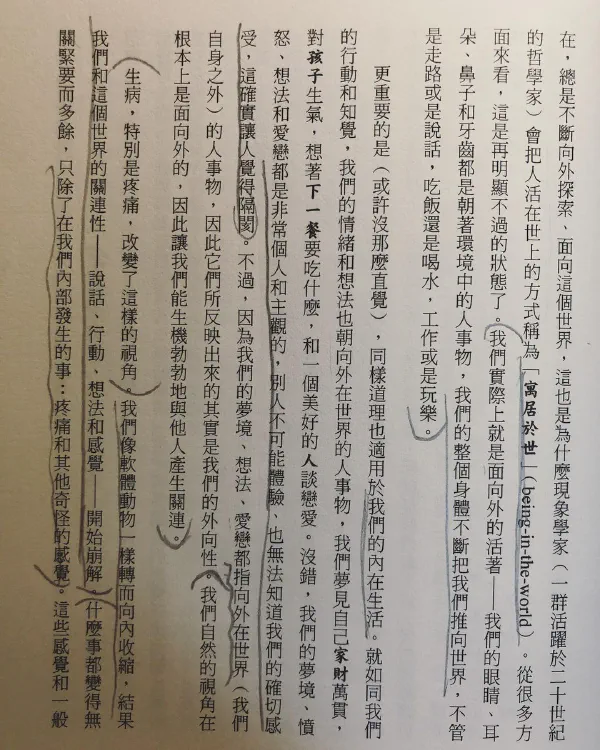 在，總是不斷向外探索、面向這個世界，這也是為什麼現象學家（一群活躍於二十世紀
的哲學家）會把人活在世上的方式稱為「寓居於世」（being-in-the-world）。從很多方
面來看，這是再明顯不過的狀態了。我們實際上就是面向外的活著——我們的眼睛、耳
朵、鼻子和牙齒都是朝著環境中的人事物，我們的整個身體不斷把我們推向世界，不管
是走路或是說話，吃飯還是喝水，工作或是玩樂。
更重要的是（或許沒那麼直覺），同樣道理也適用於我們的內在生活。就如同我們
的行動和知覺，我們的情緒和想法也朝向外在世界的人事物，我們夢見自己家財萬貫，
對孩子生氣，想著下一餐要吃什麼，和一個美好的人談戀愛。沒錯，我們的夢境、憤
怒、想法和愛戀都是非常個人和主觀的，別人不可能體驗、也無法知道我們的確切感
受，這確實讓人覺得隔閡。不過，因為我們的夢境、想法、愛戀都指向外在世界（我們
自身之外）的人事物，因此它們所反映出來的其實是我們的外向性。我們自然的視角在
根本上是面向外的，因此讓我們能生機勃勃地與他人產生關連。
生病，特別是疼痛，改變了這樣的視角。我們像軟體動物一樣轉而向內收縮，結果
我們和這個世界的關連性——說話、行動、想法和感覺——開始崩解。什麼事都變得無
關緊要而多餘，只除了在我們內部發生的事：疼痛和其他奇怪的感覺。這些感覺和一般